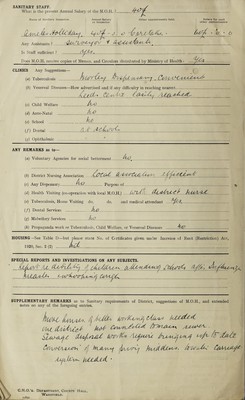 SANITARY STAFF.
What is the present Annual Salary of the M.O.H. ? 40£
Any Assistants ? Surveyor & Assistants
Is Staff sufficient ? Yes.
Does M.O.H. receive copies of Memos. and Circulars distributed by Ministry of Health? Yes
CLINICS Any Suggestions—
(a) Tuberculosis Morley Dispensary Convenient
(b) Venereal Diseases—How advertised and if any difficulty in reaching centres
Leeds Centre Easily reached
(c) Child Welfare No
(d) Ante-Natal No
(e) School No
(f) Dental C.C. Schools
(g) Ophthalmic
ANY REMARKS as to—
(a) Voluntary Agencies for social betterment No.
(b) District Nursing Association Local association efficient
(c) Any Dispensary No Purpose of
(d) Health Visiting (co-operative with local M.O.H.) with district nurse
(e) Tuberculosis, Home Visiting do. do. and medical attendant Yes.
(f) Dental Services No
(g) Midwifery Services No
(h) Propaganda work re Tuberculosis, Child Welfare, or Venereal Diseases No
SPECIAL REPORTS AND INVESTIGATIONS ON ANY SUBJECTS.
Report re debility of children attending schools after Influenza
measles & whooping cough
SUPPLEMENTARY REMARKS as to Sanitary requirements of District, suggestions of M.O.H., and extended
notes on any of the foregoing entries.
More houses of better working class needed
one district not connected to main sewer
Sewage disposal works require bringing up to date
Conversion of many privy middens to water carriage
system needed.